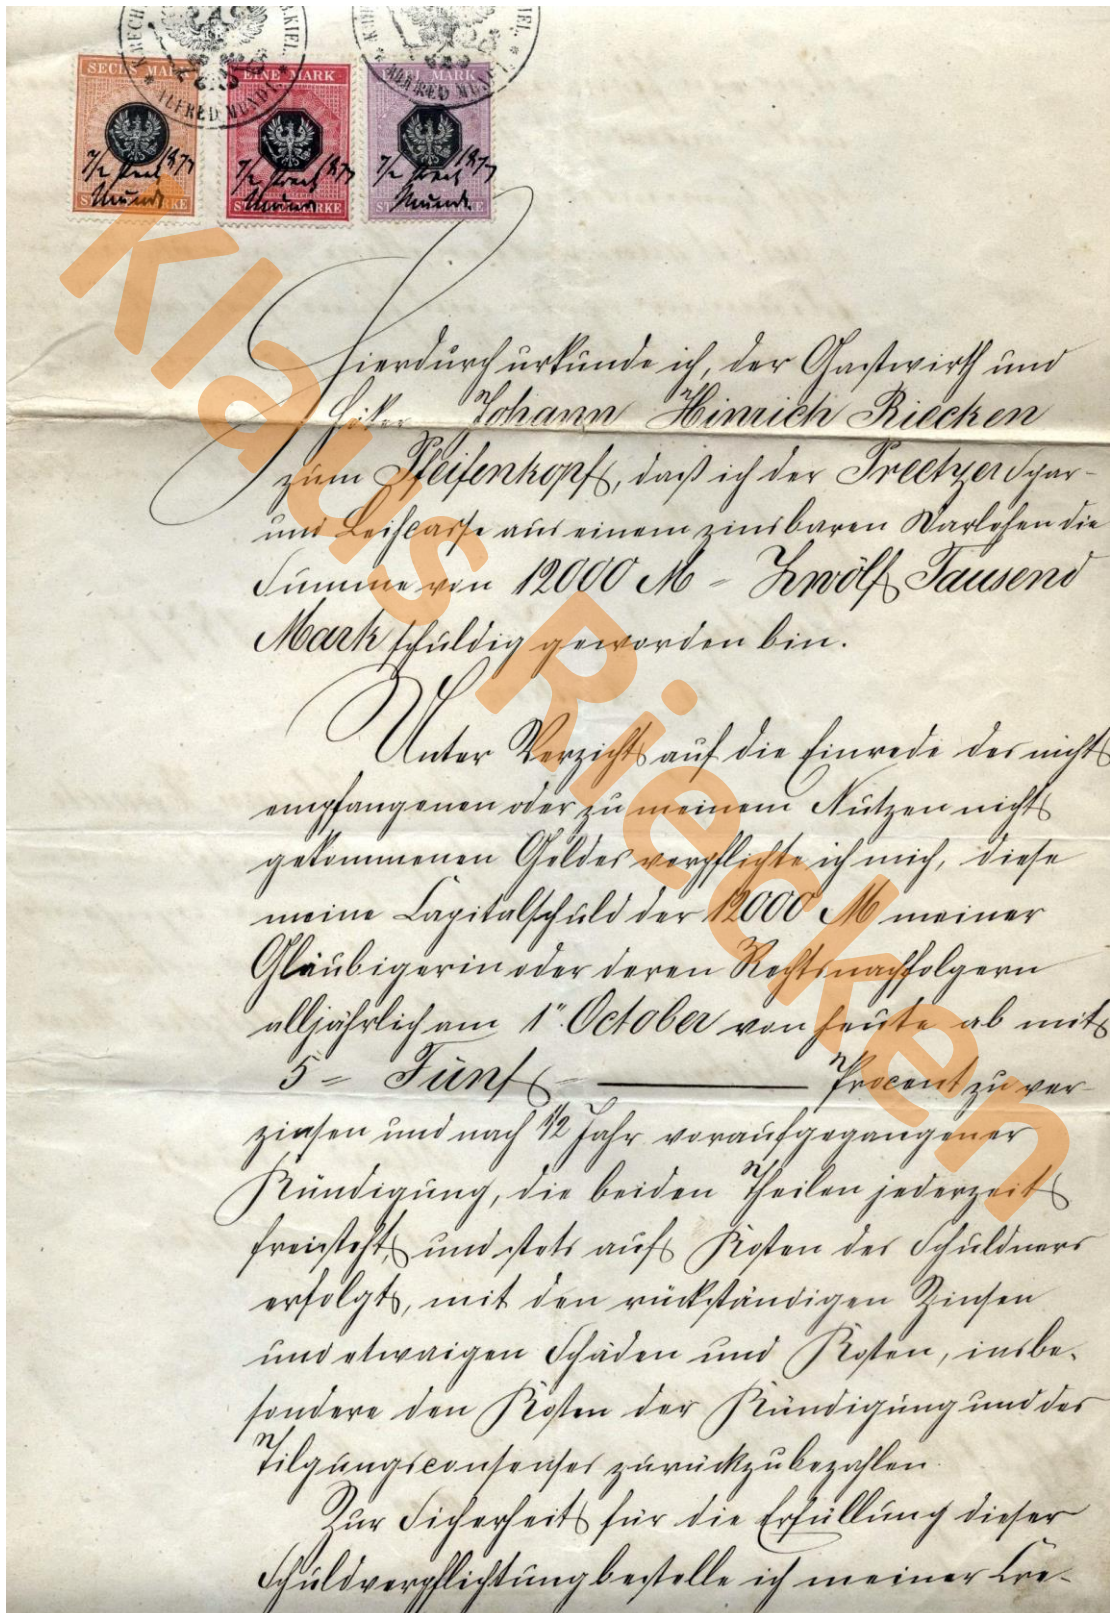 KIEL.
KIEL.
* ALFRED MUNDT *
* ALFRED MUNDT
SECHS MARK
EINE MARK
ZWEI MARK
7/2 1877
7/2 1877
7/2 1877
Mundt
Mundt
Mundt
STEMPELMARKE
STEMPELMARKE
STEMPELMARKE
Hierdurch urkunde ich, der Gastwirth und
Höker Johann Hinrich Riecken
zum Pfeifenkopf, daß ich der Preetzer Spar-
und Leihcasse aus einem zinsbaren Darlehen die
Summe von 12000 M = Zwölf Tausend
Mark schuldig geworden bin.
Unter Verzicht auf die Einrede des nicht
empfangenen oder zu meinem Nutzen nicht
gekommenen Geldes verpflichte ich mich, diese
meine Capitalschuld der 12000 M meiner
Gläubigerin oder deren Rechtsnachfolgern
alljährlich am 1". October von heute ab mit
5 = Fünf — Procent zu ver-
zinsen und nach 1/2 Jahr voraufgegangener
Kündigung, die beiden Theilen jederzeit
freisteht, und stets auf Kosten des Schuldners
erfolgt, mit den rückständigen Zinsen
und etwaigen Schäden und Kosten, insbe-
sondere den Kosten der Kündigung und des
Tilgungsconsenses zurückzubezahlen.
Zur Sicherheit für die Erfüllung dieser
Schuldverpflichtung bestelle ich meiner Cre-
Klaus Riecken